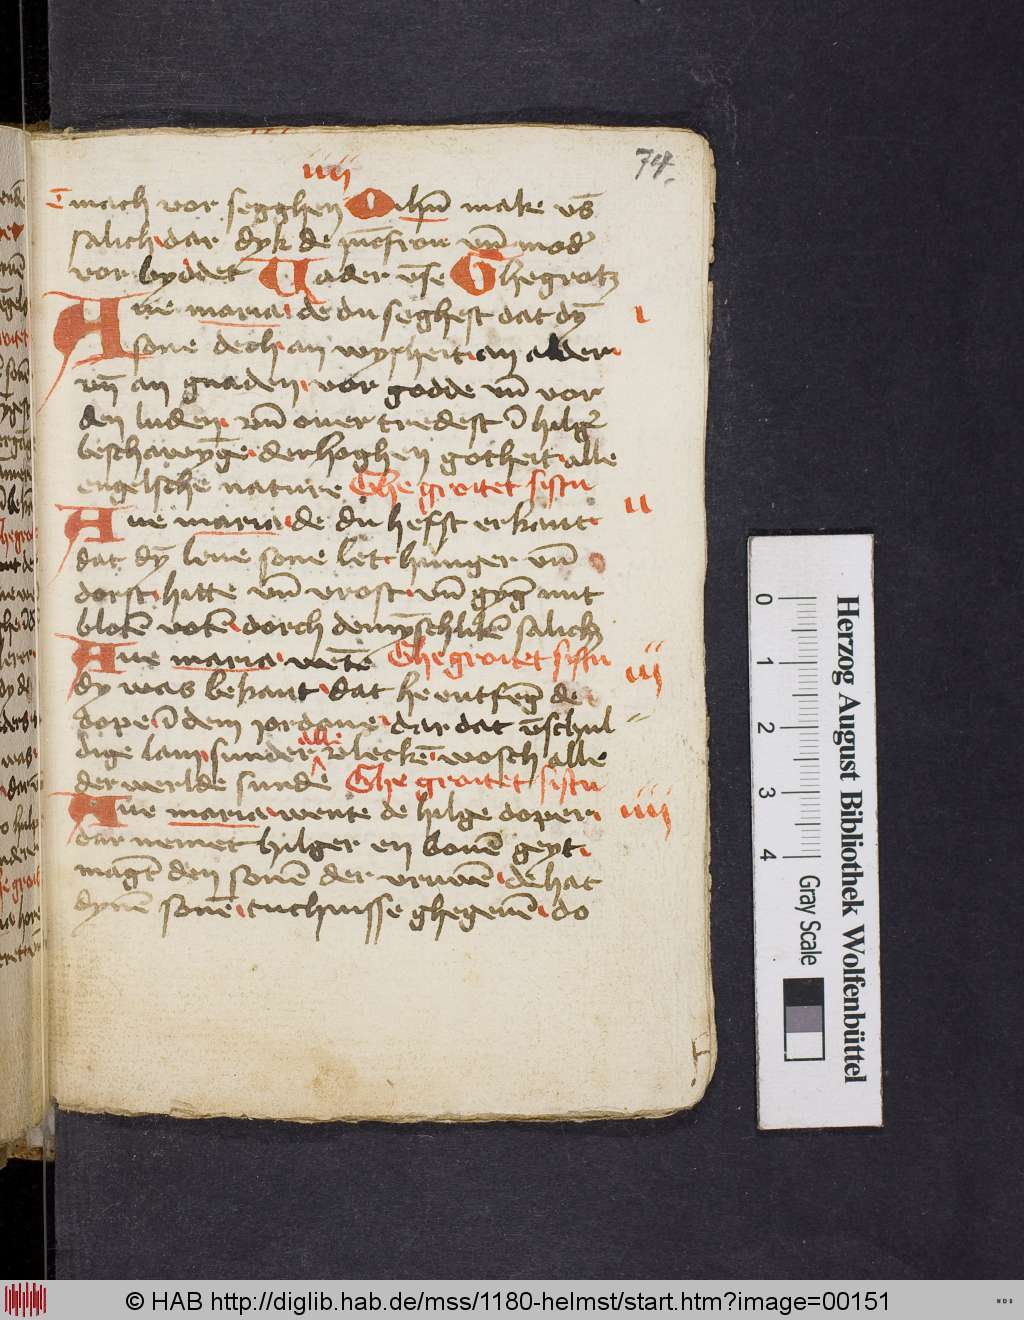 74
iiii
mach vor segghen O ihū make vs̄
salich dar dyk de
vor byddet Uader vn̄se Ghegrotz
Aue maria de du seghest dat dȳ
sone dech an wysheit an alder
vn̄ an gnaden vor godde vn̄ vor
den luden vn̄ ouer tredest ī hilḡ
beschawȳge der hoghen gotheit alle
engelsche nature Ghe grotet sistu
i
Aue maria de du hefst erkant
ii
dat dȳ leue sone let hunger vn̄
dorst hitte vn̄ vrost vn̄ gȳg mit
blotē votē dorch den mȳschlikē salich
Aue maria wēte Ghegrotet sistu
iii
dy was bekant dat he entfēg de
dope ī dem jordane dar dat vn̄schul
dige lam sunder alle beleckē wosch alle
der werlde sunde Ghe grotet sistu
Aue maria wente de hilge doper
iiii
dar nemet hilger en bouē geyt
magt den sonē der vruwē de hat
dynē sonē tuchnisse ghegeuē do
Herzog August Bibliothek Wolfenbüttel
0 1 2 3 4
Gray Scale
© HAB http://diglib.hab.de/mss/1180-helmst/start.htm?image=00151